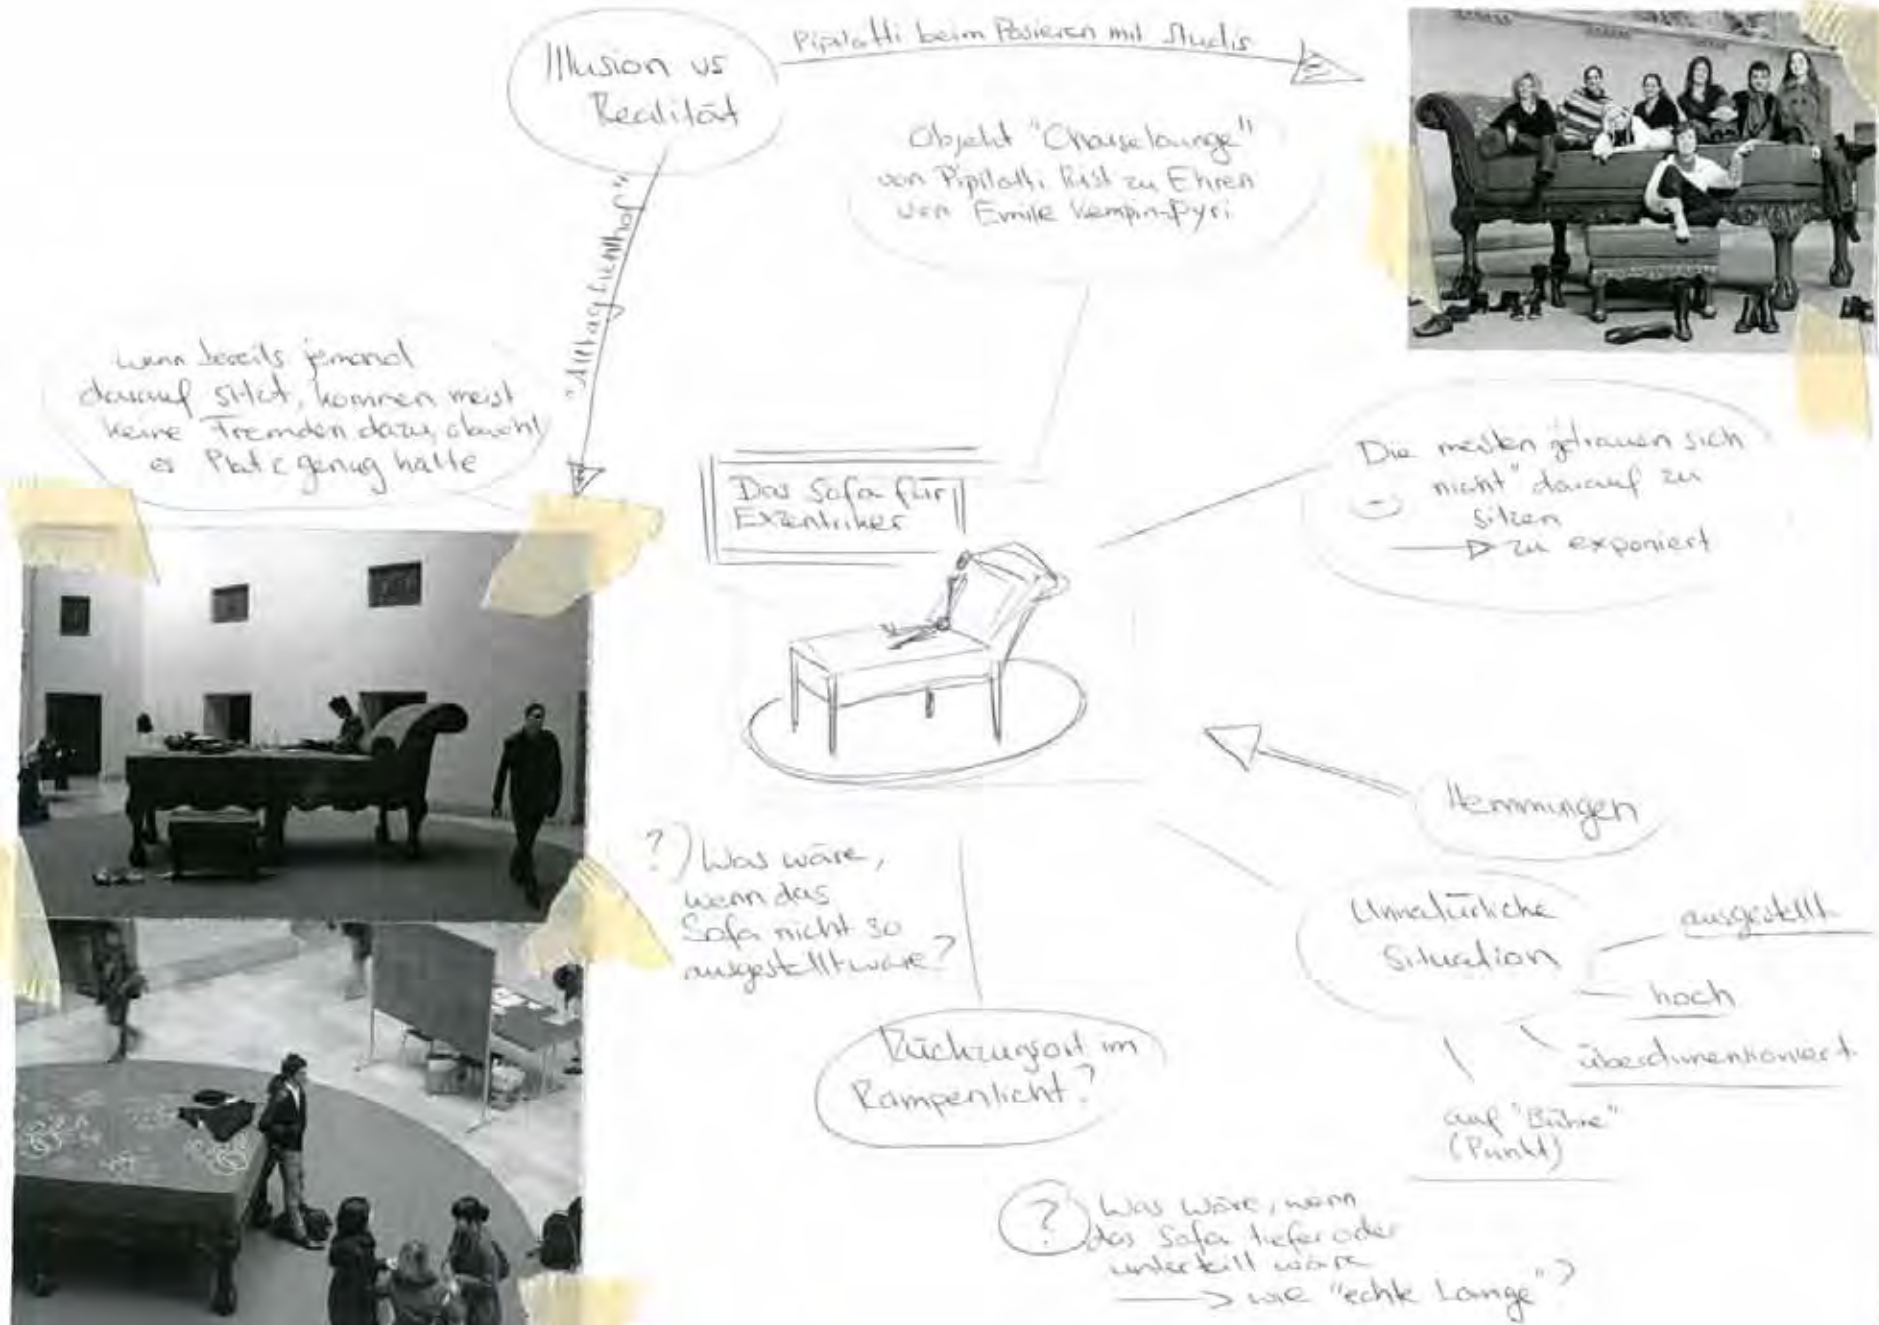 Illusion vs
Realität
Pipilotti beim Posieren mit Studis
Objekt "Chaiselounge"
von Pipilotti Rist zu Ehren
von Emile Kempin-Spyri
"Alltag Lichthof"
wenn bereits jemand
darauf sitzt, kommen meist
keine Fremden dazu, obwohl
es Platz genug hätte
Das Sofa für
Exzentriker
Die meisten getrauen sich
nicht" darauf zu
sitzen
zu exponiert
Hemmungen
Unnatürliche
Situation
ausgestellt
hoch
überdimensioniert
auf "Bühne"
(Punkt)
?) Was wäre,
wenn das
Sofa nicht so
ausgestellt wäre?
Rückzugsort im
Rampenlicht?
? Was wäre, wenn
das Sofa tiefer oder
unterteilt wäre
wie "echte Lounge"?